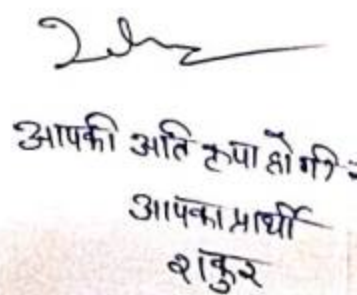 आपकी अति कृपा होगी
आपका प्रार्थी
शंकुर